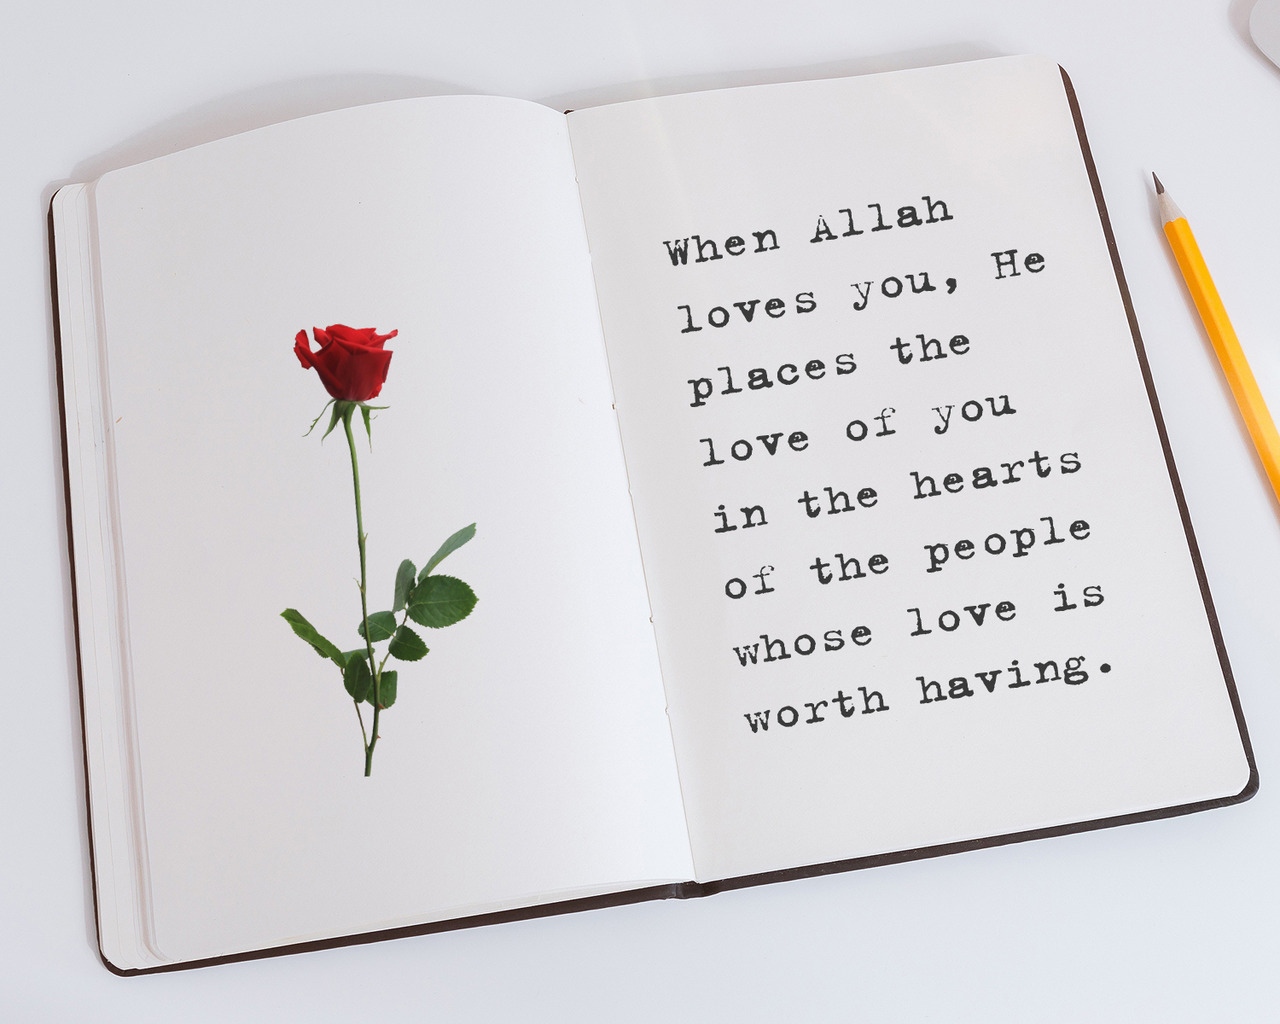 When Allah
loves you, He
places the
love of you
in the hearts
of the people
whose love is
worth having.